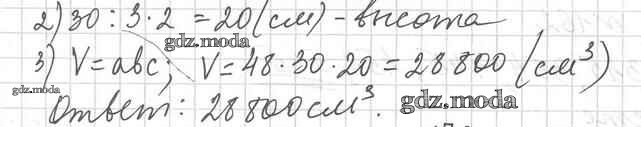 2) 30 : 3 · 2 = 20 (см) - высота
gdz.moda
3) V = abc; V = 48 · 30 · 20 = 28 800 (см³)
gdz.moda
Ответ: 28 800 см³.
gdz.moda